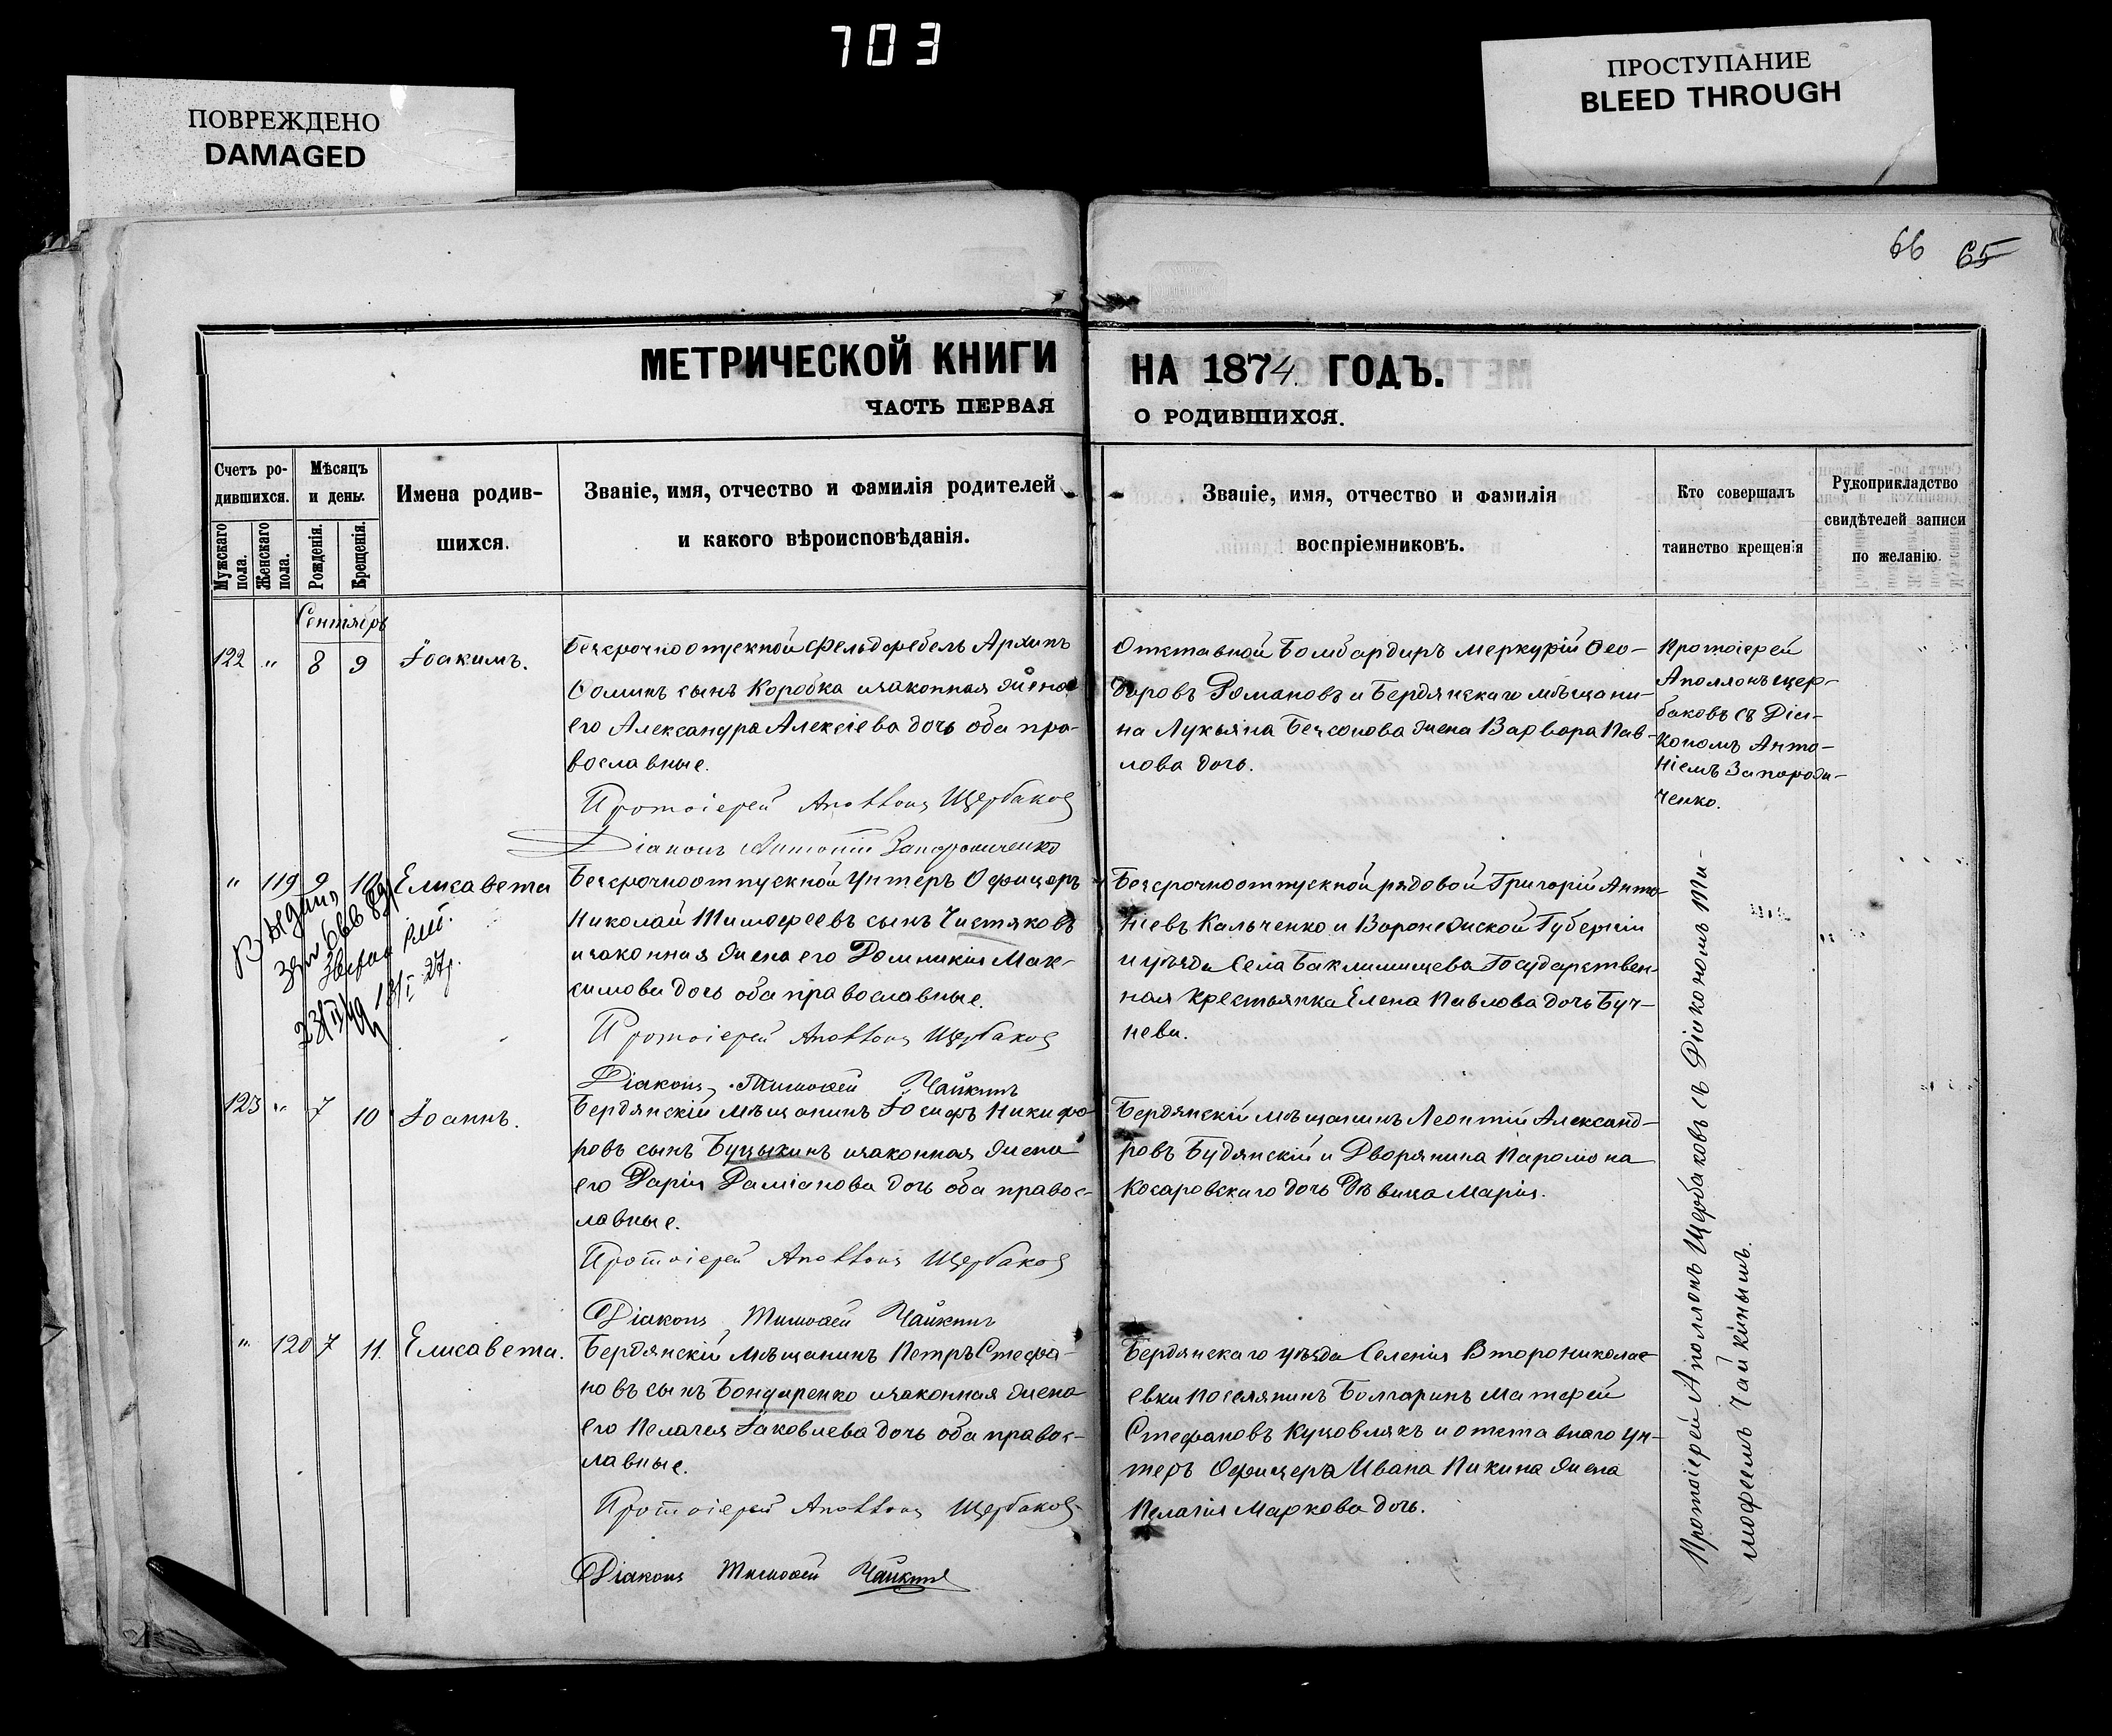 703
ПОВРЕЖДЕНО
DAMAGED
ПРОСТУПАНИЕ
BLEED THROUGH
66 65
МЕТРИЧЕСКОЙ КНИГИ НА 1874 ГОДЪ.
ЧАСТЬ ПЕРВАЯ О РОДИВШИХСЯ.
Счетъ ро-
дившихся.
Мужскаго пола.
Женскаго пола.
Мѣсяцъ
и день.
Рожденія.
Крещенія.
Имена родив-
шихся.
Званіе, имя, отчество и фамилія родителей
и какого вѣроисповѣданія.
Званіе, имя, отчество и фамилія
воспріемниковъ.
Кто совершалъ
таинство крещенія
Рукоприкладство
свидѣтелей записи
по желанію.
Сентябрь
122 " 8 9 Іоакимъ.
Безсрочноотускной Фельдфебель Архипъ
Ѳоминъ сынъ Коробка изаконная жена
его Александра Алексіева дочь оба пра-
вославные.
Протоіерей Аполлонъ Щербаковъ
Діаконъ Антоній Запорожченко
Отставной Бомбардиръ Меркурій Ѳео-
доровъ Романовъ и Бердянскаго мѣщани-
на Лукьяна Безсонова жена Варвара Пав-
лова дочь.
Протоіерей
Аполлонъ Щер-
баковъ съ Діа-
кономъ Анто-
ніемъ Запорож-
ченко.
" 119 9 10 Елисавета
Безсрочноотпускной Унтеръ Офицеръ
Николай Тимофеевъ сынъ Чистяковъ
изаконная жена его Домникія Мак-
симова дочь оба православные.
Протоіерей Аполлонъ Щербаковъ
Діаконъ Тимоѳей Чайкинъ
Безсрочноотпускной рядовой Григорій Анто-
ніевъ Кальченко и Воронежской Губерніи
и уѣзда Села Государствен-
ная крестьянка Елена Павлова дочь Буч-
нева.
123 " 7 10 Іоаннъ.
Бердянскій мѣщанинъ Іосифъ Никифо-
ровъ сынъ Буцыкинъ изаконная жена
его Дарія Даміанова дочь оба правос-
лавные.
Протоіерей Аполлонъ Щербаковъ
Діаконъ Тимоѳей Чайкинъ
Бердянскій мѣщанинъ Леонтій Александ-
ровъ Будянскій и Дворянина Парамона
Косаровскаго дочь Дѣвица Марія.
" 120 7 11. Елисавета.
Бердянскій мѣщанинъ Петръ Стефа-
новъ сынъ Бондаренко изаконная жена
его Пелагея Іаковлева дочь оба правос-
лавные.
Протоіерей Аполлонъ Щербаковъ
Діаконъ Тимоѳей Чайкинъ
Бердянскаго уѣзда Селенія Второниколае
евки поселянинъ Болгаринъ Матфей
Стефановъ и отставнаго Ун-
теръ Офицера Ивана Пикина жена
Пелагія Маркова дочь.
Протоіерей Аполлонъ Щербаковъ съ Діакономъ Ти-
мофеемъ Чайкинымъ.